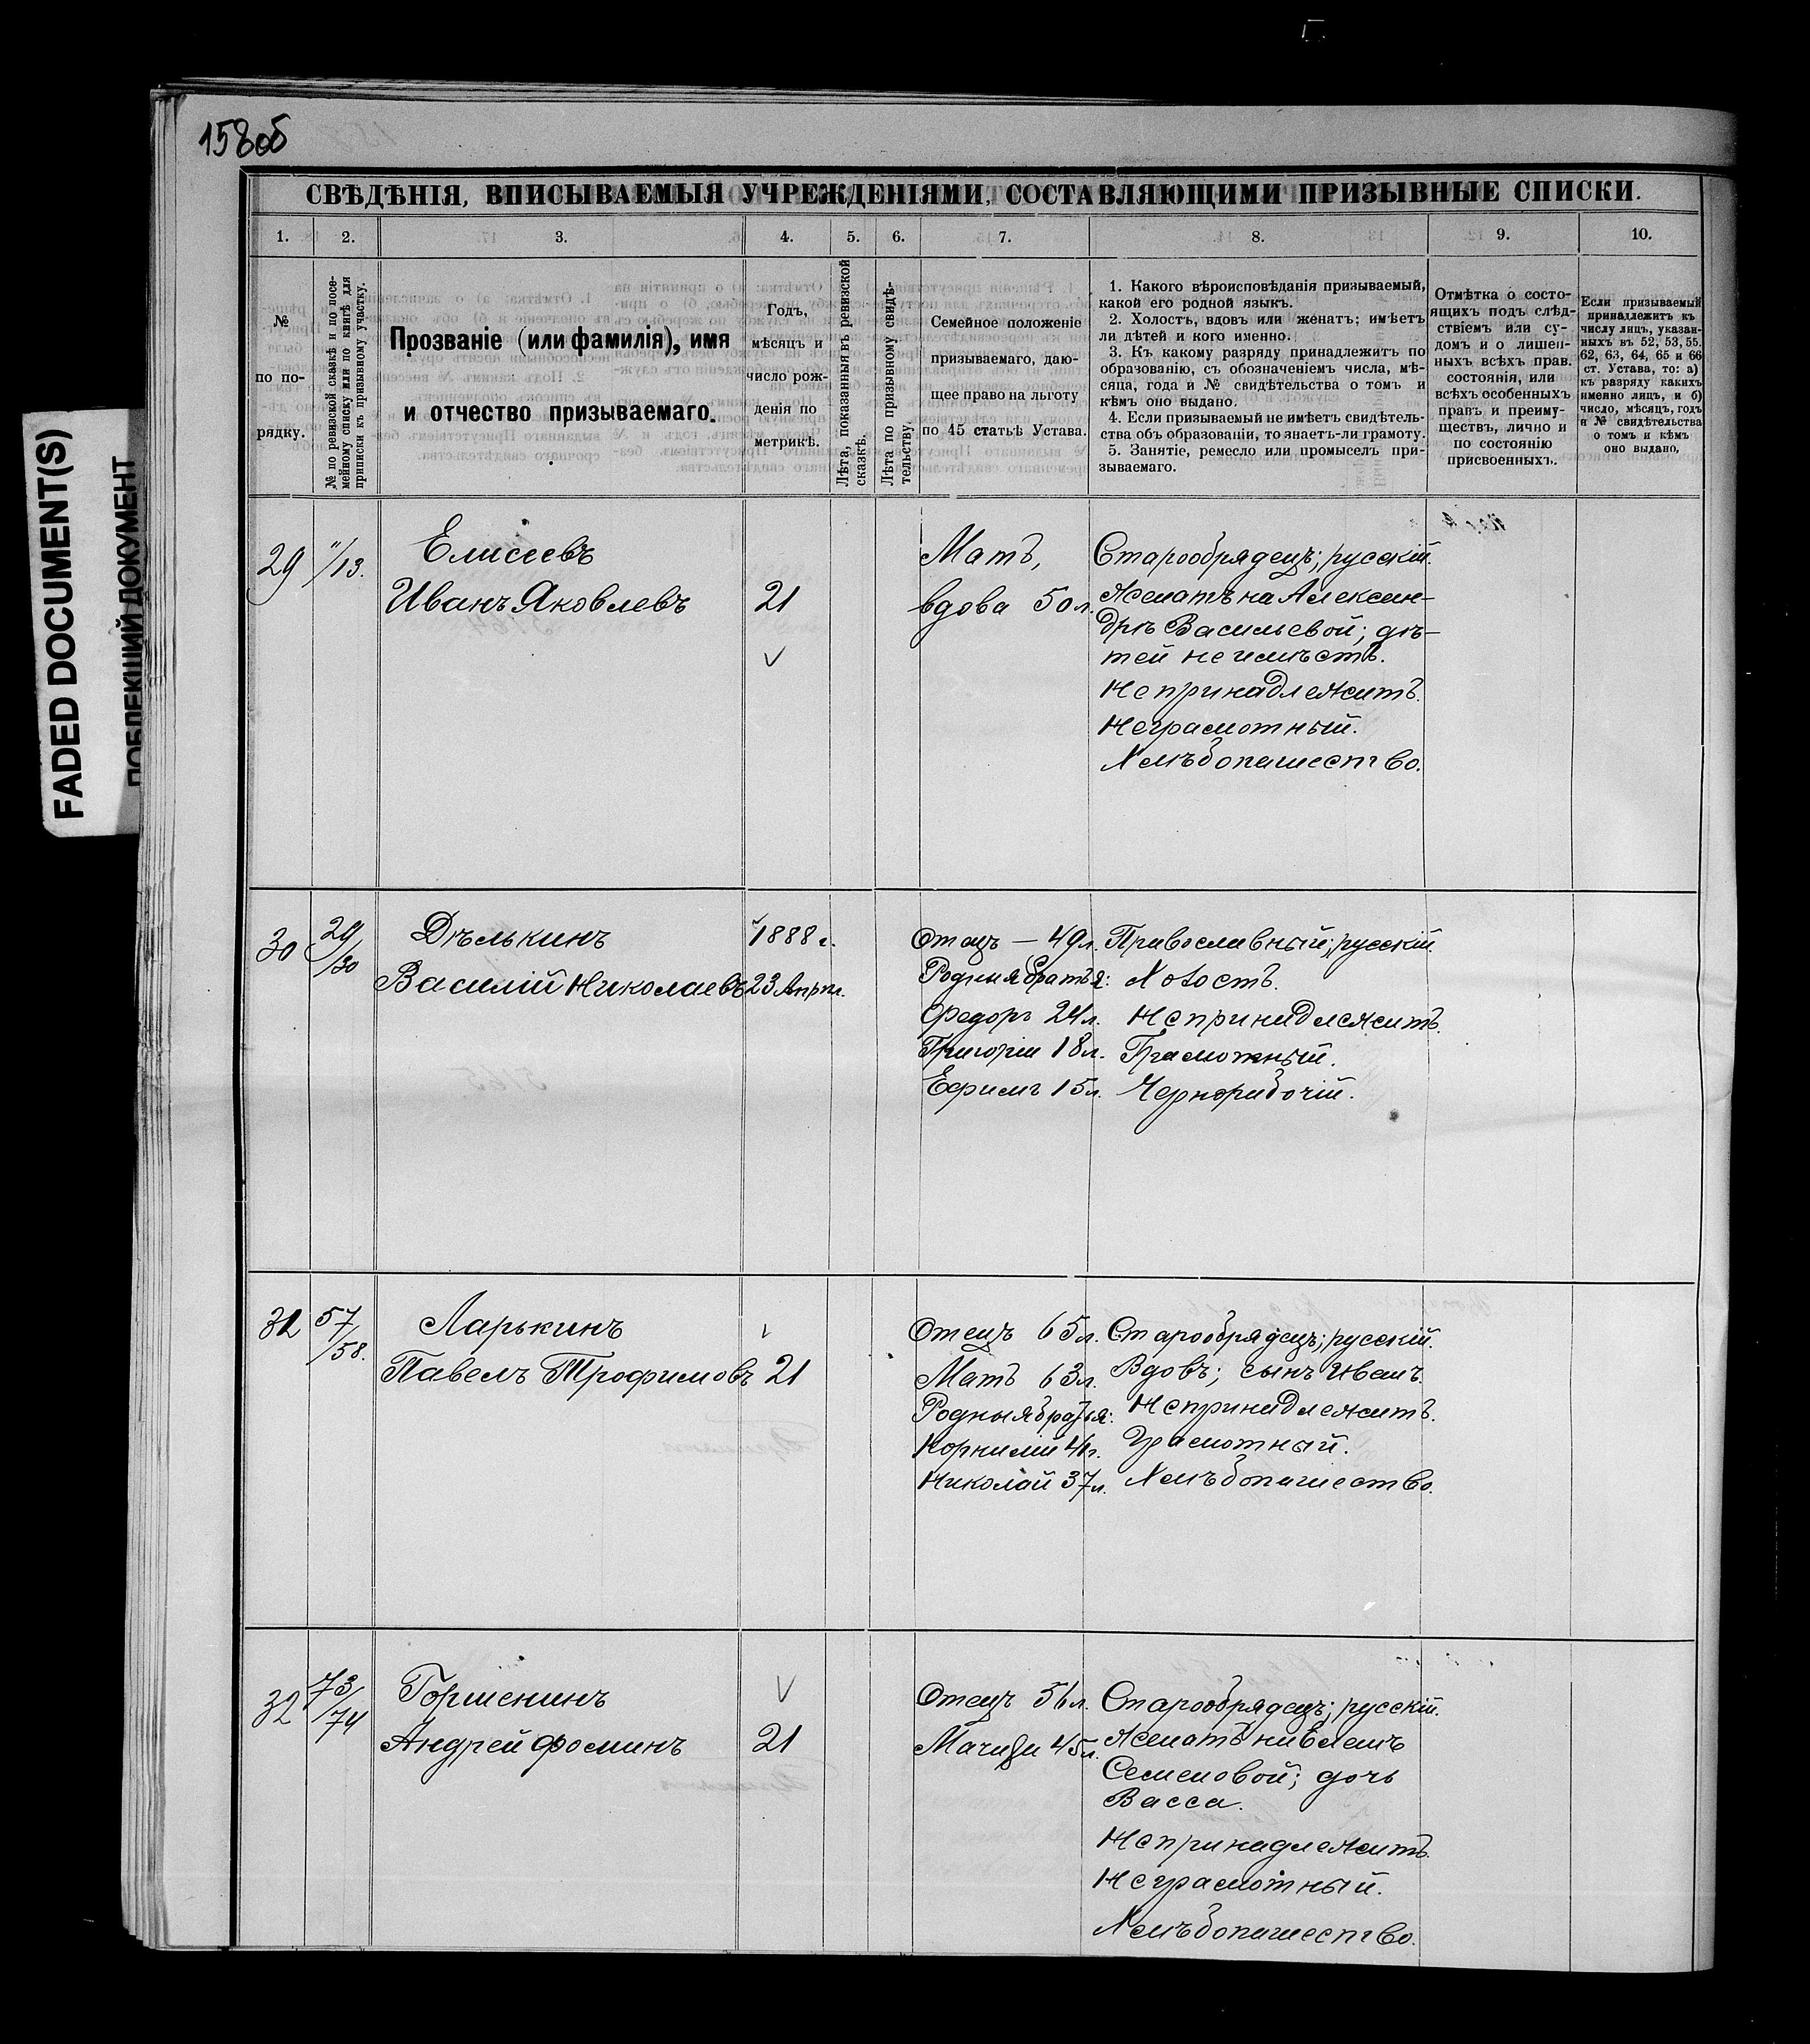 158об
FADED DOCUMENT(S)
ДОКУМЕНТ
СВѢДѢНІЯ, ВПИСЫВАЕМЫЯ УЧРЕЖДЕНІЯМИ, СОСТАВЛЯЮЩИМИ ПРИЗЫВНЫЕ СПИСКИ.
1. 2. 3. 4. 5. 6. 7. 8. 9. 10.
№
по по-
рядку.
№ по ревизской сказкѣ и по посе-
мейному списку или по книгѣ для
приписки къ призывному участку.
Прозваніе (или фамилія), имя
и отчество призываемаго.
Годъ,
мѣсяцъ и
число рож-
денія по
метрикѣ.
Лѣта, показанныя въ ревизской
сказкѣ.
Лѣта по призывному свидѣ-
тельству.
Семейное положеніе
призываемаго, даю-
щее право на льготу
по 45 статьѣ Устава.
1. Какого вѣроисповѣданія призываемый,
какой его родной языкъ.
2. Холостъ, вдовъ или женатъ; имѣетъ
ли дѣтей и кого именно.
3. Къ какому разряду принадлежитъ по
образованію, съ обозначеніемъ числа, мѣ-
сяца, года и № свидѣтельства о томъ и
кѣмъ оно выдано.
4. Если призываемый не имѣетъ свидѣтель-
ства объ образованіи, то знаетъ-ли грамоту.
5. Занятіе, ремесло или промыселъ при-
зываемаго.
Отмѣтка о состо-
ящихъ подъ слѣд-
ствіемъ или су-
домъ и о лишен-
ныхъ всѣхъ прав.
состоянія, или
всѣхъ особенныхъ
правъ и преиму-
ществъ, лично и
по состоянію
присвоенныхъ.
Если призываемый
принадлежитъ къ
числу лицъ, указан-
ныхъ въ 52, 53, 55.
62, 63, 64, 65 и 66
ст. Устава, то: а)
къ разряду какихъ
именно лицъ, и б)
число, мѣсяцъ, годъ
и № свидѣтельства
о томъ и кѣмъ
оно выдано.
29
11/13.
Елисеевъ
Иванъ Яковлевъ
21
Мать,
вдова 50 л.
Старообрядецъ; русскій.
Женатъ на Алексан-
дрѣ Васильевой; дѣ-
тей не имѣетъ.
Не принадлежитъ.
Неграмотный.
Хлѣбопашество.
30
29/30
Дѣлькинъ
Василій Николаевъ
1888 г.
23 Апрѣл.
Отецъ — 49 л.
Родныя братья:
Федоръ 24 л.
Григорій 18 л.
Ефимъ 15 л.
Православный; русскій.
Холостъ.
Не принадлежитъ.
Грамотный.
Чернорабочій.
31
57/58.
Ларькинъ
Павелъ Трофимовъ
21
Отецъ 65 л.
Мать 63 л.
Родныя братья:
Корнилій 41 г.
Николай 37 л.
Старообрядецъ; русскій.
Вдовъ; сынъ Иванъ.
Не принадлежитъ.
Грамотный.
Хлѣбопашество.
32
73/74
Горшенинъ
Андрей Фоминъ
21
Отецъ 56 л.
Мачиха 45 л.
Старообрядецъ; русскій.
Семеновой; дочь
Васса.
Не принадлежитъ.
Неграмотный.
Хлѣбопашество.